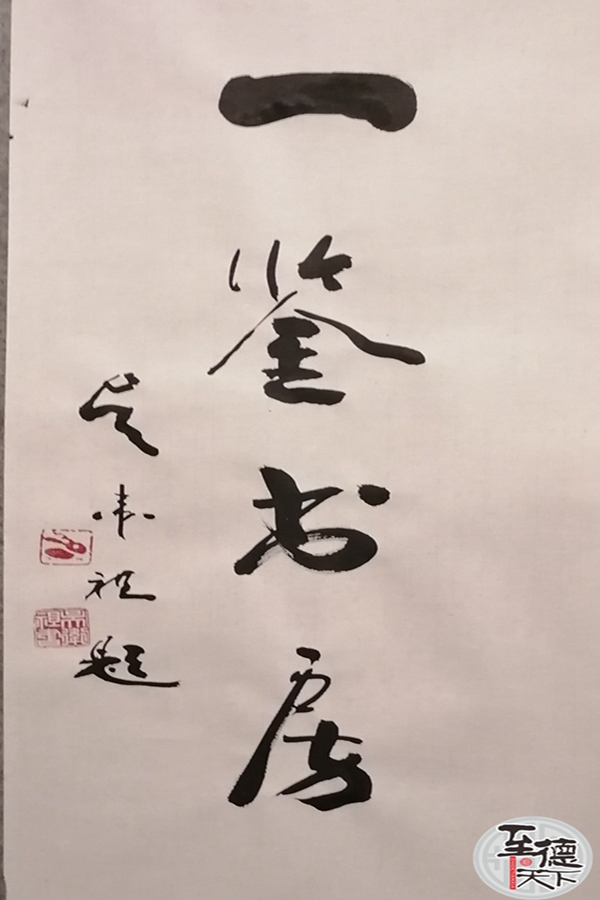 一鉴书房
吴衛祖题
至德
天下